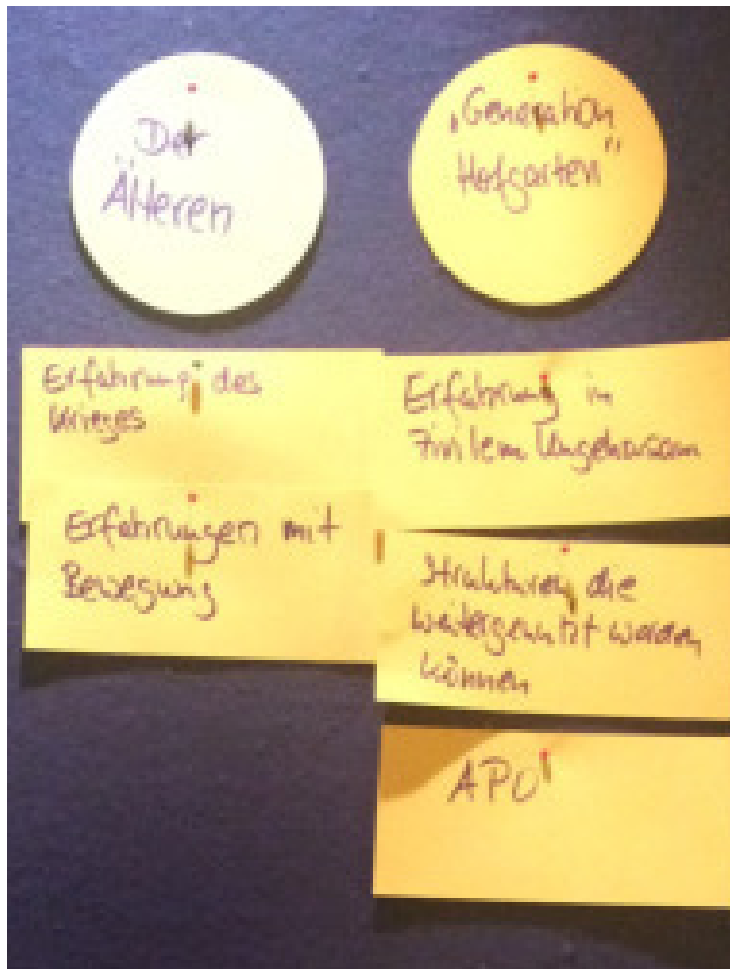 Der
Älteren
„Generation
Hofgarten"
Erfahrung des
Krieges
Erfahrungen mit
Bewegung
Erfahrung in
Zivilem Ungehorsam
Strukturen die
weitergenutzt werden
können
APO